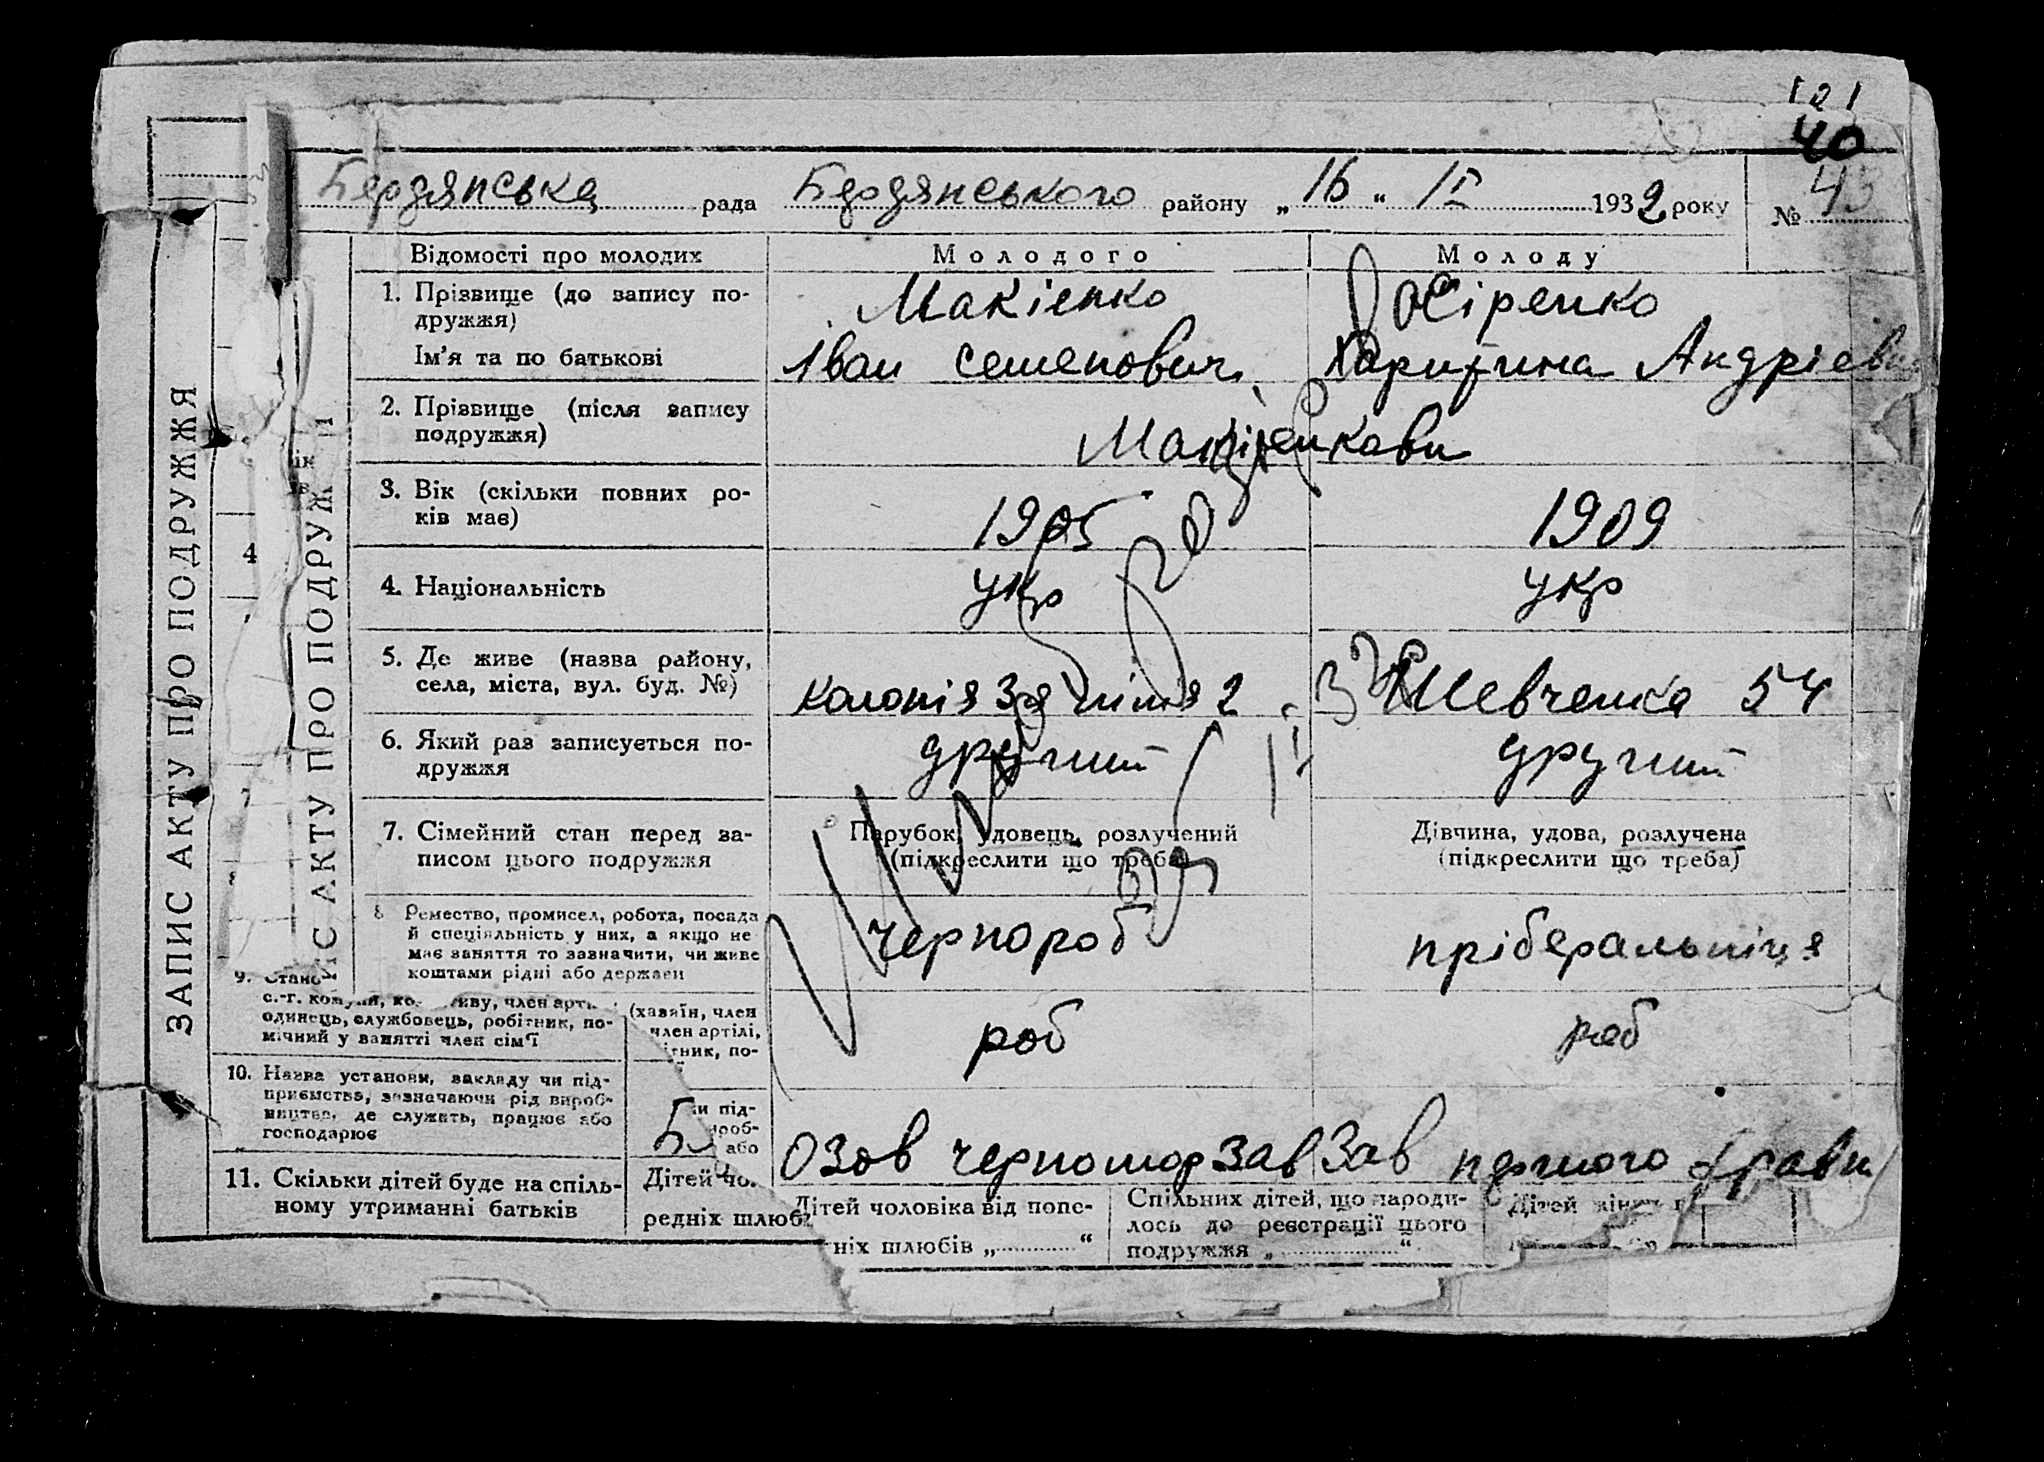 121
40
Бердянська рада Бердянського району „16“ II 1932 року № 43
ЗАПИС АКТУ ПРО ПОДРУЖЖЯ
ИС АКТУ ПРО ПОДРУЖ
Відомості про молодих Молодого Молоду
1. Прізвище (до запису по-
дружжя) Макієнко Осіренко
Ім'я та по батькові Іван Семенович Харитина Андрієв
2. Прізвище (після запису
подружжя) Макієнкови
3. Вік (скільки повних ро-
ків має) 1905 1909
4. Національність укр укр
5. Де живе (назва району,
села, міста, вул. буд. №) колонія 3я лінія 2 Шевченка 54
6. Який раз записується по-
дружжя другий другий
7. Сімейний стан перед за-
писом цього подружжя
Парубок, удовець, розлучений
(підкреслити що треба)
Дівчина, удова, розлучена
(підкреслити що треба)
8 Ремество, промисел, робота, посада
й спеціяльність у них, а якщо не
має заняття то зазначити, чи живе
коштами рідні або держави
чернороб пріберальніця
9. Стано
одинець, службовець, робітник, по-
мічний у занятті член сім'ї
(хазяїн, член
член артілі,
тник, по-
роб роб
10. Назва установи, закладу чи під-
приємства, зазначаючи рід вироб-
ництва, де служить, працює або
господарює
чи під-
роб-
або
Озов черномор зав Зав
11. Скільки дітей буде на спіль-
ному утриманні батьків
Дітей чо
редніх шлюб
Дітей чоловіка від попе-
ніх шлюбів „ “
Спільних дітей, що народи-
лось до реєстрації цього
подружжя „ “
Дітей жінк